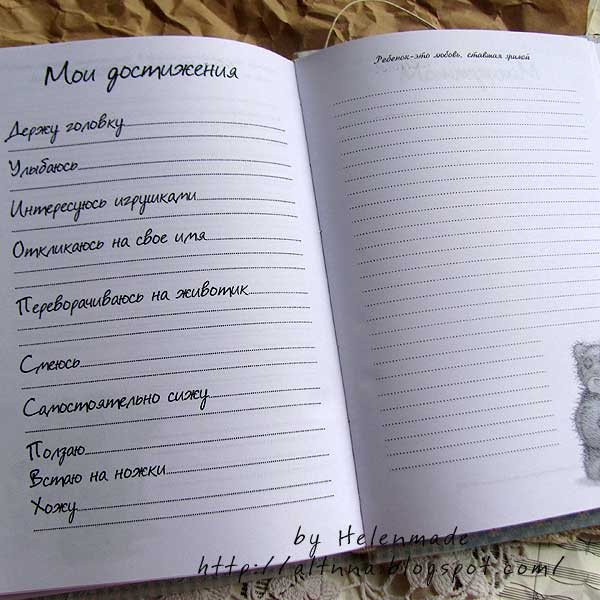 Мои достижения
Держу головку
Улыбаюсь
Интересуюсь игрушками
Откликаюсь на свое имя
Переворачиваюсь на животик
Смеюсь
Самостоятельно сижу
Ползаю
Встаю на ножки
Хожу
Ребенок-это любовь, ставшая зримой
by Helenmade
http://altnna.blogspot.com/